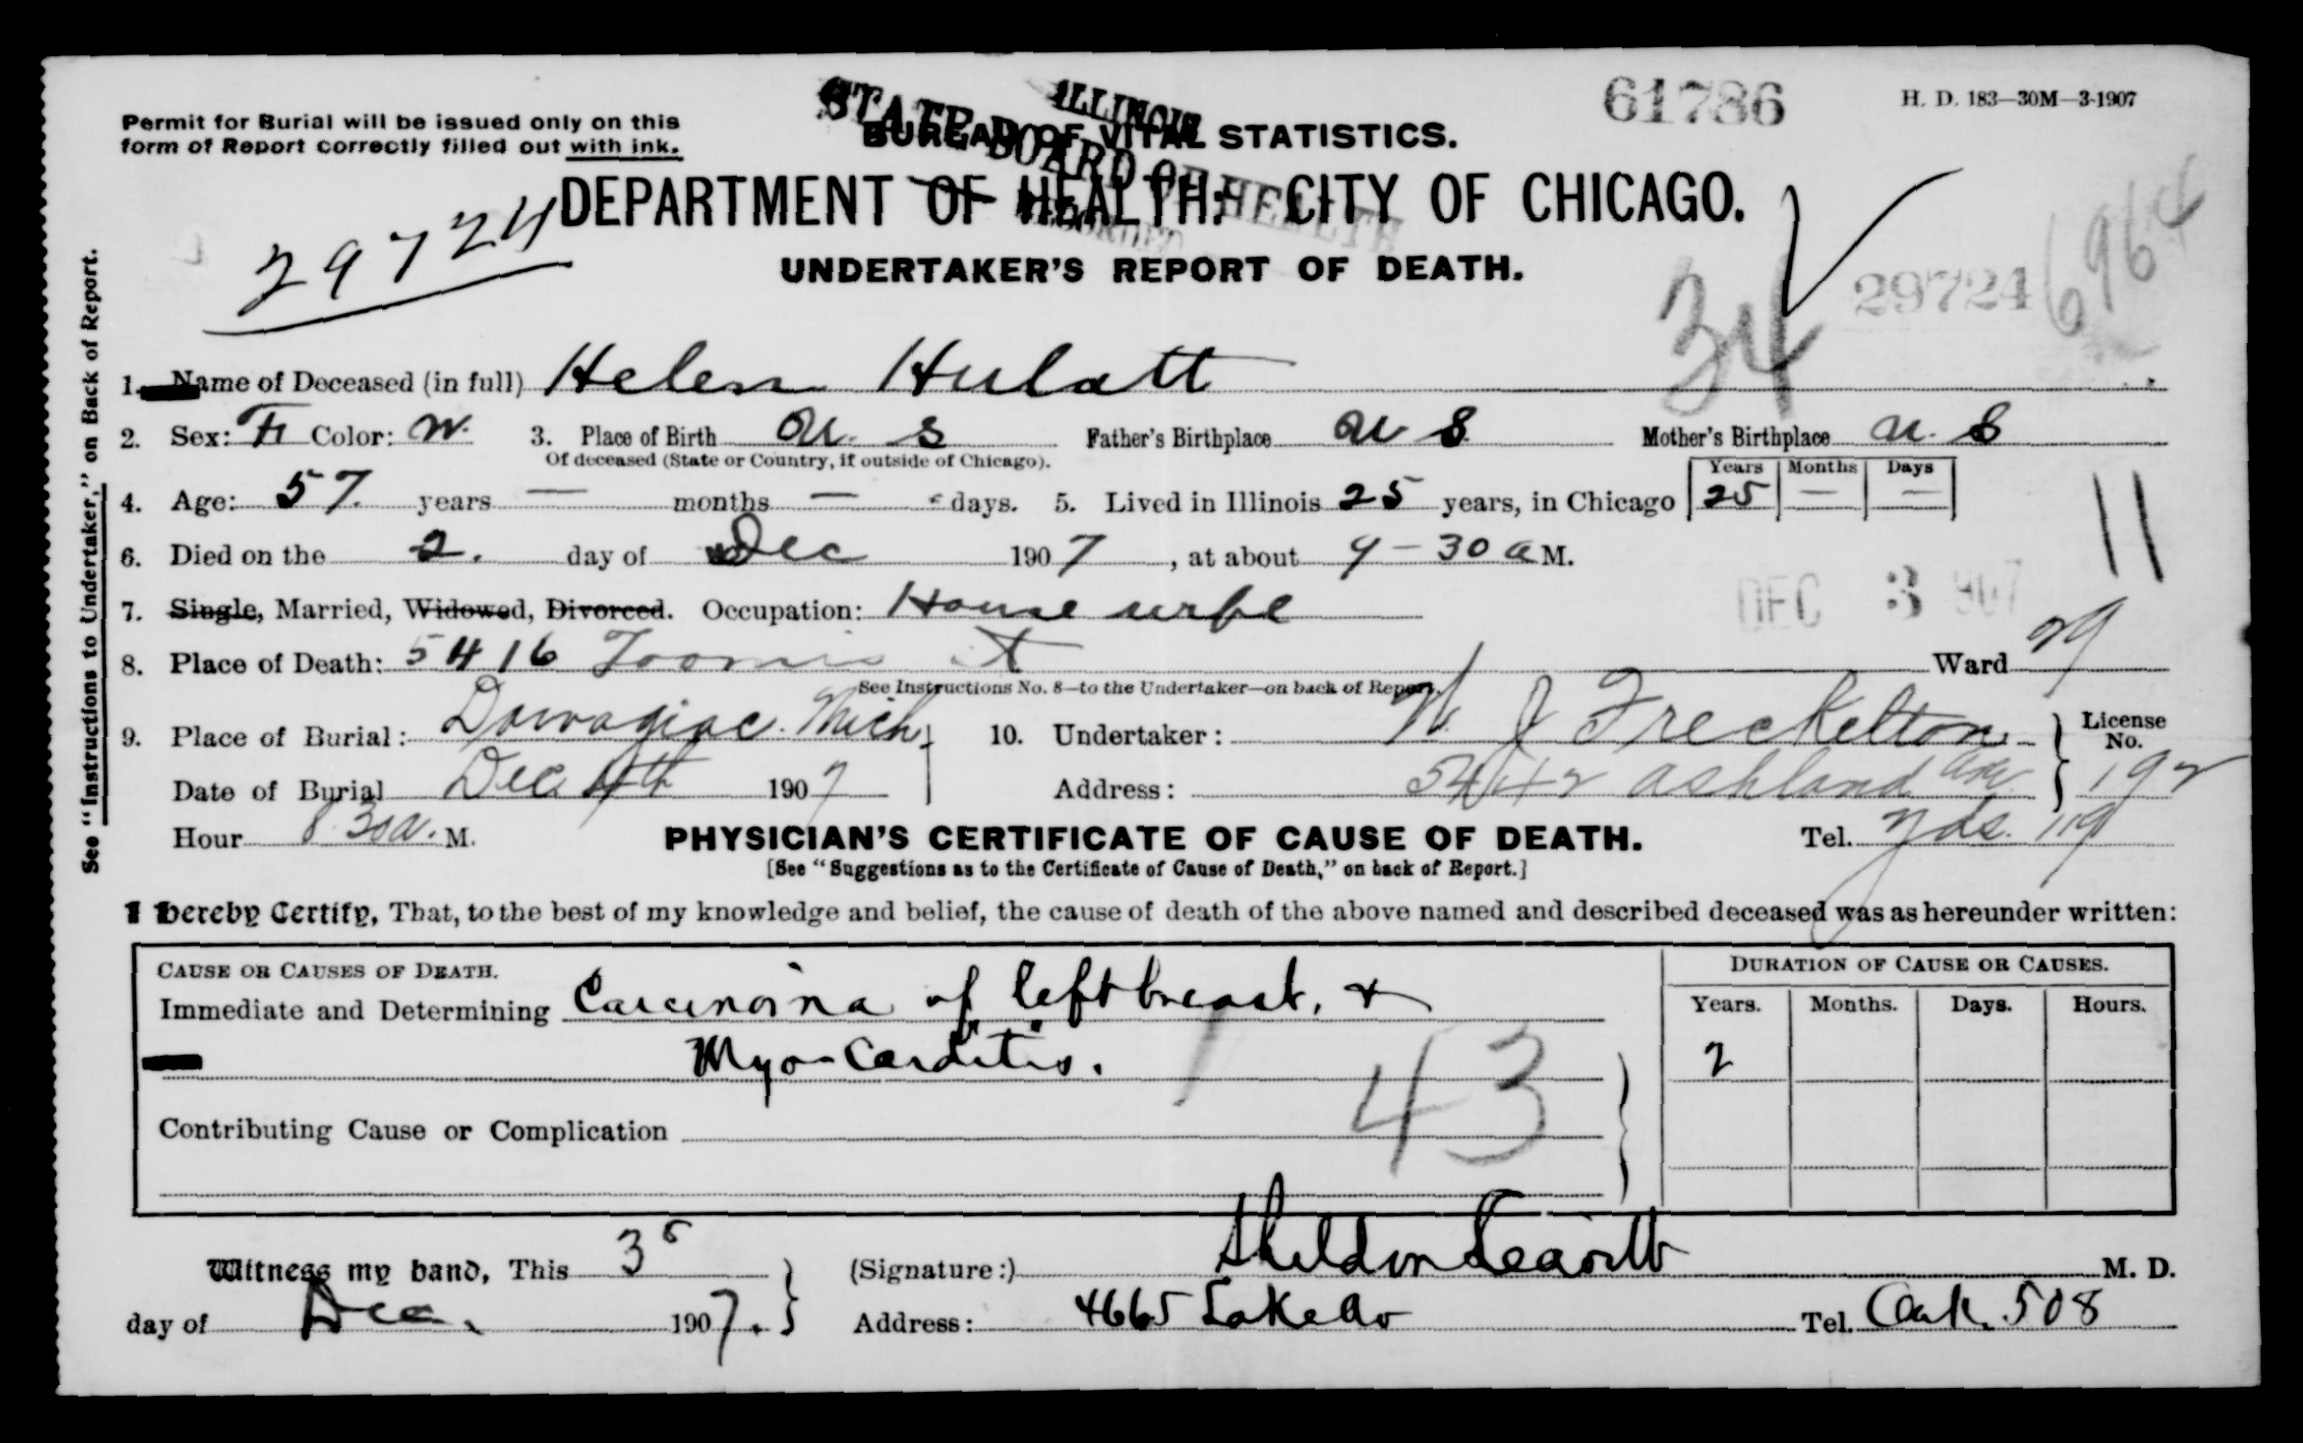 Permit for Burial will be issued only on this
form of Report correctly filled out with ink.
ILLINOIS
STATE BOARD OF HEALTH
61786
H. D. 183—30M—3-1907
BUREAU OF VITAL STATISTICS.
DEPARTMENT OF HEALTH: CITY OF CHICAGO.
29724
UNDERTAKER'S REPORT OF DEATH.
34
29724
6964
See "Instructions to Undertaker," on Back of Report.
1. Name of Deceased (in full) Helen Hulatt
2. Sex: F Color: W. 3. Place of Birth U. S Father's Birthplace U S. Mother's Birthplace U. S
Of deceased (State or Country, if outside of Chicago).
Years Months Days
4. Age: 57. years — months — days. 5. Lived in Illinois 25 years, in Chicago 25 — —
11
6. Died on the 2. day of Dec 1907, at about 9-30 a M.
DEC 3 1907
7. Single, Married, Widowed, Divorced. Occupation: House wife
8. Place of Death: 5416 Loomis st Ward 29
See Instructions No. 8—to the Undertaker—on back of Report.
9. Place of Burial: Dowagiac. Mich 10. Undertaker: W J Freckelton License No. 192
Date of Burial Dec 4th 1907 Address: 5442 Ashland ave
Hour 8 30 a. M. PHYSICIAN'S CERTIFICATE OF CAUSE OF DEATH. Tel. Yds. 119
[See "Suggestions as to the Certificate of Cause of Death," on back of Report.]
I hereby Certify, That, to the best of my knowledge and belief, the cause of death of the above named and described deceased was as hereunder written:
CAUSE OR CAUSES OF DEATH. DURATION OF CAUSE OR CAUSES.
Immediate and Determining Carcinoma of left breast, & Years. Months. Days. Hours.
Myo-Carditis. 2
43
Contributing Cause or Complication
Witness my hand, This 3 (Signature:) Sheldon Leavitt M. D.
day of Dec. 1907. Address: 4665 Lake Av Tel. Oak. 508